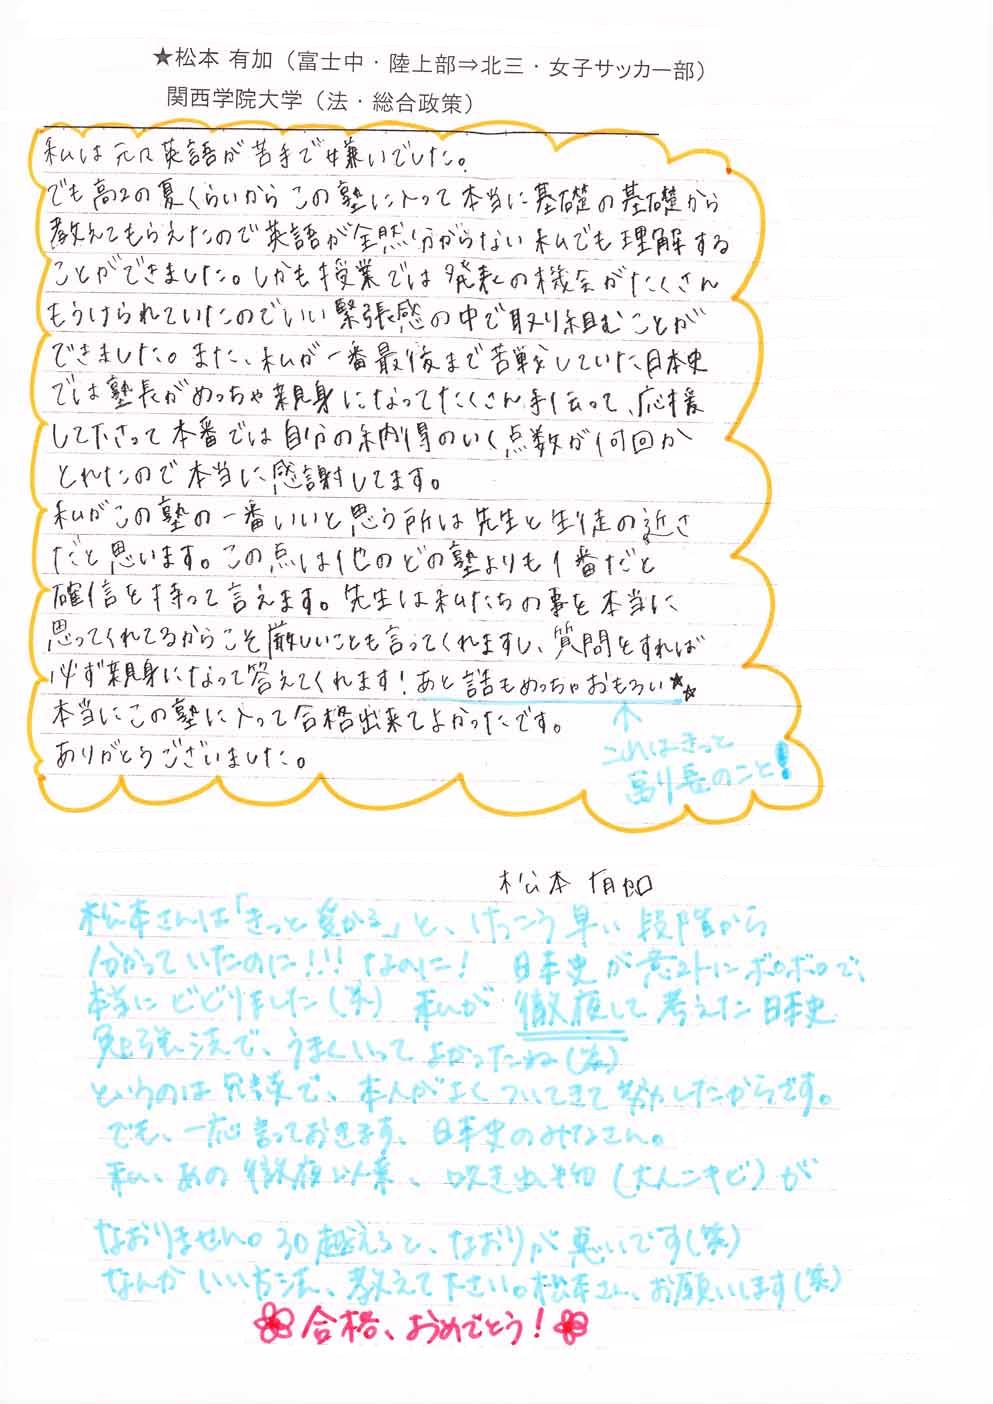 ★松本 有加（富士中・陸上部⇒北三・女子サッカー部）
関西学院大学（法・総合政策）
私は元々英語が苦手で嫌いでした。
でも高2の夏くらいからこの塾に入って本当に基礎の基礎から
教えてもらえたので英語が全然分からない私でも理解する
ことができました。しかも授業では発表の機会がたくさん
もうけられていたのでいい緊張感の中で取り組むことが
できました。また、私が一番最後まで苦戦をしていた日本史
では塾長がめっちゃ親身になってたくさん手伝って、応援
して下さって本番では自分の納得のいく点数が何回か
とれたので本当に感謝してます。
私がこの塾の一番いいと思う所は先生と生徒の近さ
だと思います。この点は他のどの塾よりも1番だと
確信を持って言えます。先生は私たちの事を本当に
思ってくれてるからこそ厳しいことも言ってくれますし、質問をすれば
必ず親身になって答えてくれます！あと話もめっちゃおもろい★★
本当にこの塾に入って合格出来てよかったです。
ありがとうございました。
↑
これはきっと
副長のこと！
松本 有加
松本さんは「きっと受かる」と、けっこう早い段階から
分かっていたのに!!! なのに！ 日本史が意外にボロボロで、
本当にビビりました（笑） 私が徹夜して考えた日本史
勉強法で、うまくいってよかったね（笑）
というのは冗談で、本人がよくついてきて努力したからです。
でも、一応言っておきます、日本史のみなさん。
私、あの徹夜以来、吹き出物（大人ニキビ）が
なおりません。30越えると、なおりが悪いです（笑）
なんかいい方法、教えて下さい。松本さん、お願いします（笑）
合格、おめでとう！